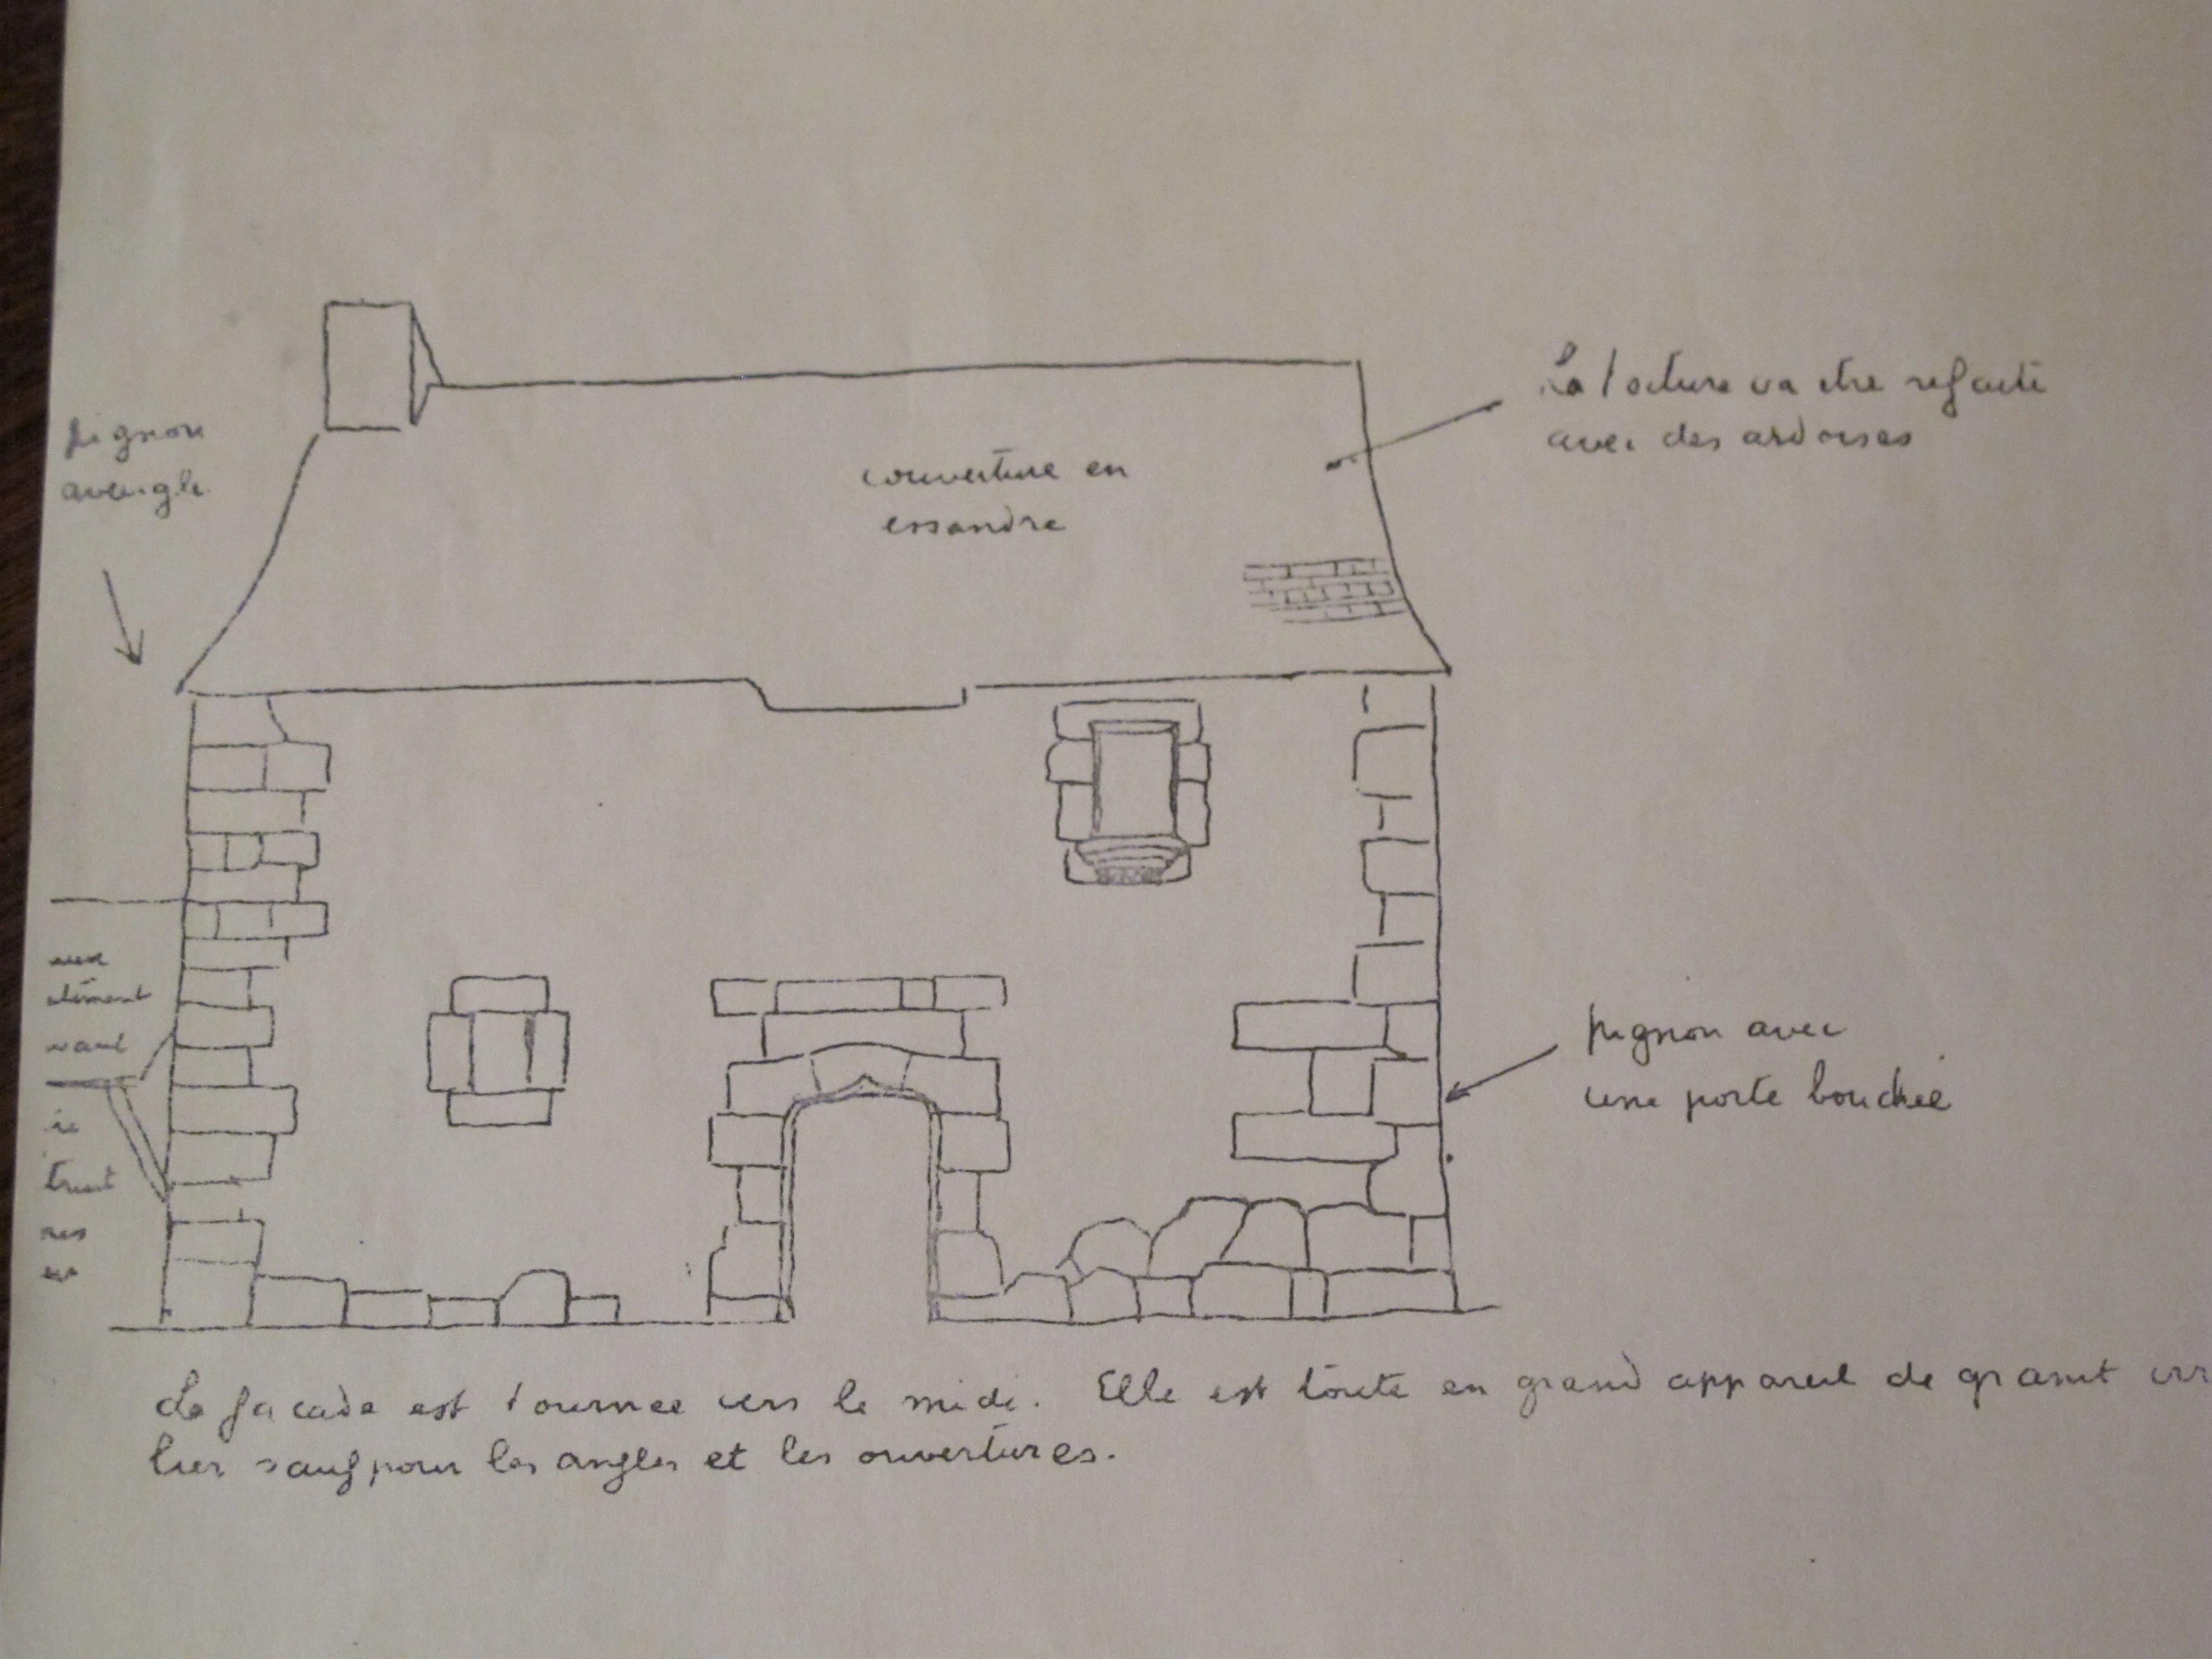 La toiture va etre refaite
avec des ardoises
pignon
aveugle
couverture en
essandre
pignon avec
une porte bouchée
vant
truit
res
La façade est tournée vers le midi. Elle est toute en grand appareil de granit irr
lier sauf pour les angles et les ouvertures.